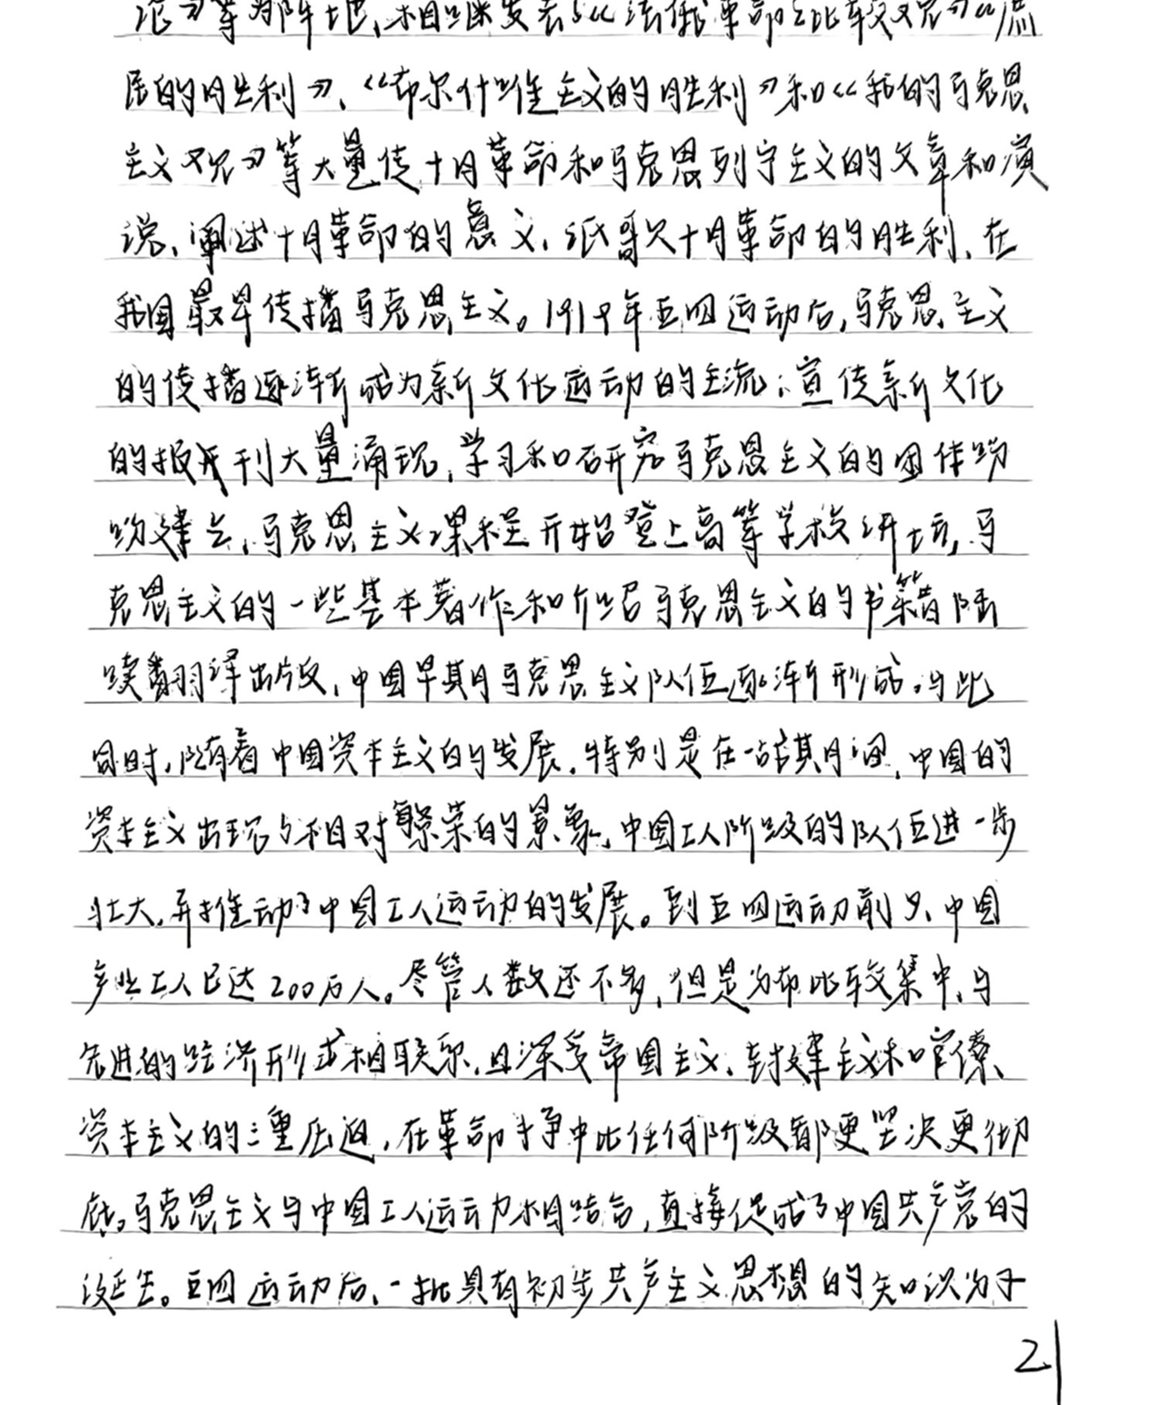 论》等为阵地,相继发表了《法俄革命之比较观》《庶
民的胜利》、《布尔什维主义的胜利》和《我的马克思
主义观》等大量传十月革命和马克思列宁主义的文章和演
说,阐述十月革命的意义,讴歌十月革命的胜利,在
我国最早传播马克思主义。1919年五四运动后,马克思主义
的传播逐渐成为新文化运动的主流:宣传新文化
的报刊大量涌现,学习和研究马克思主义的团体纷
纷建立,马克思主义课程开始登上高等学校讲坛,马
克思主义的一些基本著作和介绍马克思主义的书籍陆
续翻译出版,中国早期马克思主义队伍逐渐形成。与此
同时,随着中国资本主义的发展,特别是在一战期间,中国的
资本主义出现了相对繁荣的景象,中国工人阶级的队伍进一步
壮大,并推动了中国工人运动的发展。到五四运动前夕,中国
产业工人已达200万人。尽管人数还不多,但是分布比较集中,与
先进的经济形式相联系,且深受帝国主义、封建主义和官僚
资本主义的三重压迫,在革命斗争中比任何阶级都更坚决更彻
底。马克思主义与中国工人运动相结合,直接促成了中国共产党的
诞生。五四运动后,一批具有初步共产主义思想的知识分子
2